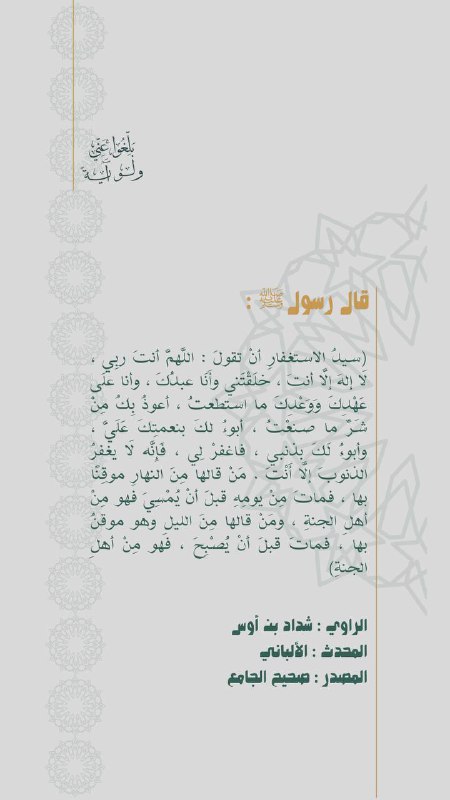 بَلِّغُوا عَنِّي
وَلَوْ آيَة
قال رسول ﷺ :
(سيدُ الاستغفارِ أنْ تقولَ : اللَّهمَّ أنتَ ربِي ،
لَا إلهَ إلَّا أنتَ ، خلَقْتَني وأَنَا عبدُكَ ، وأنا علَى
عَهْدِكَ وَوَعْدِكَ ما استطَعتُ ، أعوذُ بِكَ مِنْ
شرِّ ما صنعْتُ ، أبوءُ لكَ بنعمتِكَ عَلَيَّ ،
وأبوءُ لَكَ بذنْبي ، فاغفرْ لِي ، فإِنَّه لَا يَغفِرُ
الذنوبَ إلَّا أَنْتَ . مَنْ قالَها مِنَ النهارِ موقِنًا
بها ، فماتَ مِنْ يومِهِ قبلَ أنْ يُمْسِيَ فهو مِنْ
أهلِ الجنةِ ، ومَنْ قالَها مِنَ الليلِ وهو موقنٌ
بها ، فماتَ قبلَ أنْ يُصْبِحَ ، فَهو مِنْ أهلِ
الجنةِ)
الراوي : شداد بن أوس
المحدث : الألباني
المصدر : صحيح الجامع